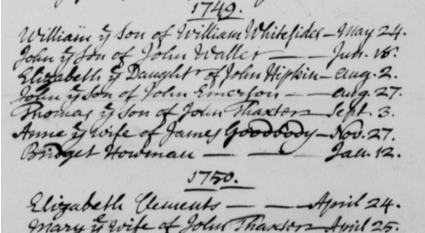 1749.
William ye Son of William Whitesides - May 24.
John ye Son of John Waller - Jun. 18.
Elizabeth ye Daughtr of John Hipkin - Aug. 2.
John ye Son of John Emerson - Aug. 27
Thomas ye Son of John Thaxter - Sept. 3.
Anne ye Wife of James Goodbody - Nov. 27.
Bridget Howman - - - Jan. 12.
1750.
Elizabeth Clements - April 24.
Mary ye Wife of John Thaxter - April 25.